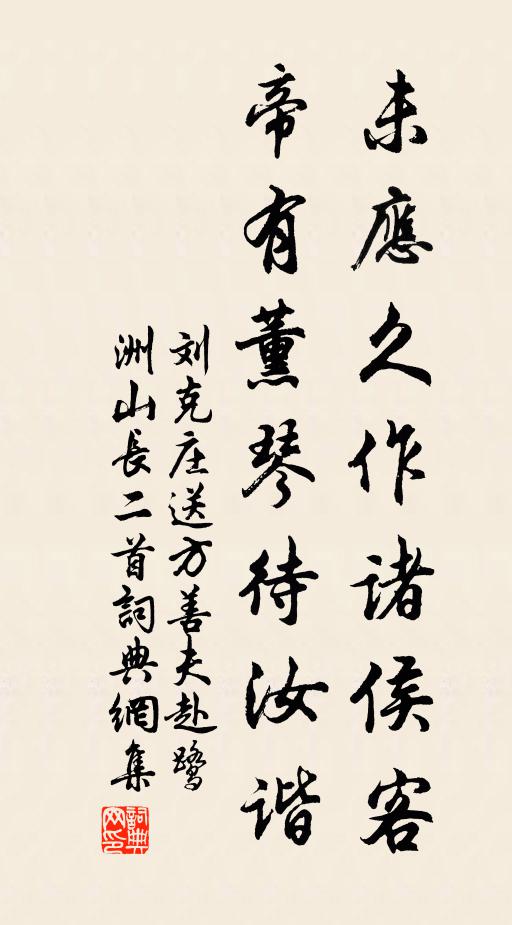 未應久作诸侯客
帝有薰琴待汝谐
刘克庄送方善夫赴鹭
洲山長二首詞典網集
詞典
网印